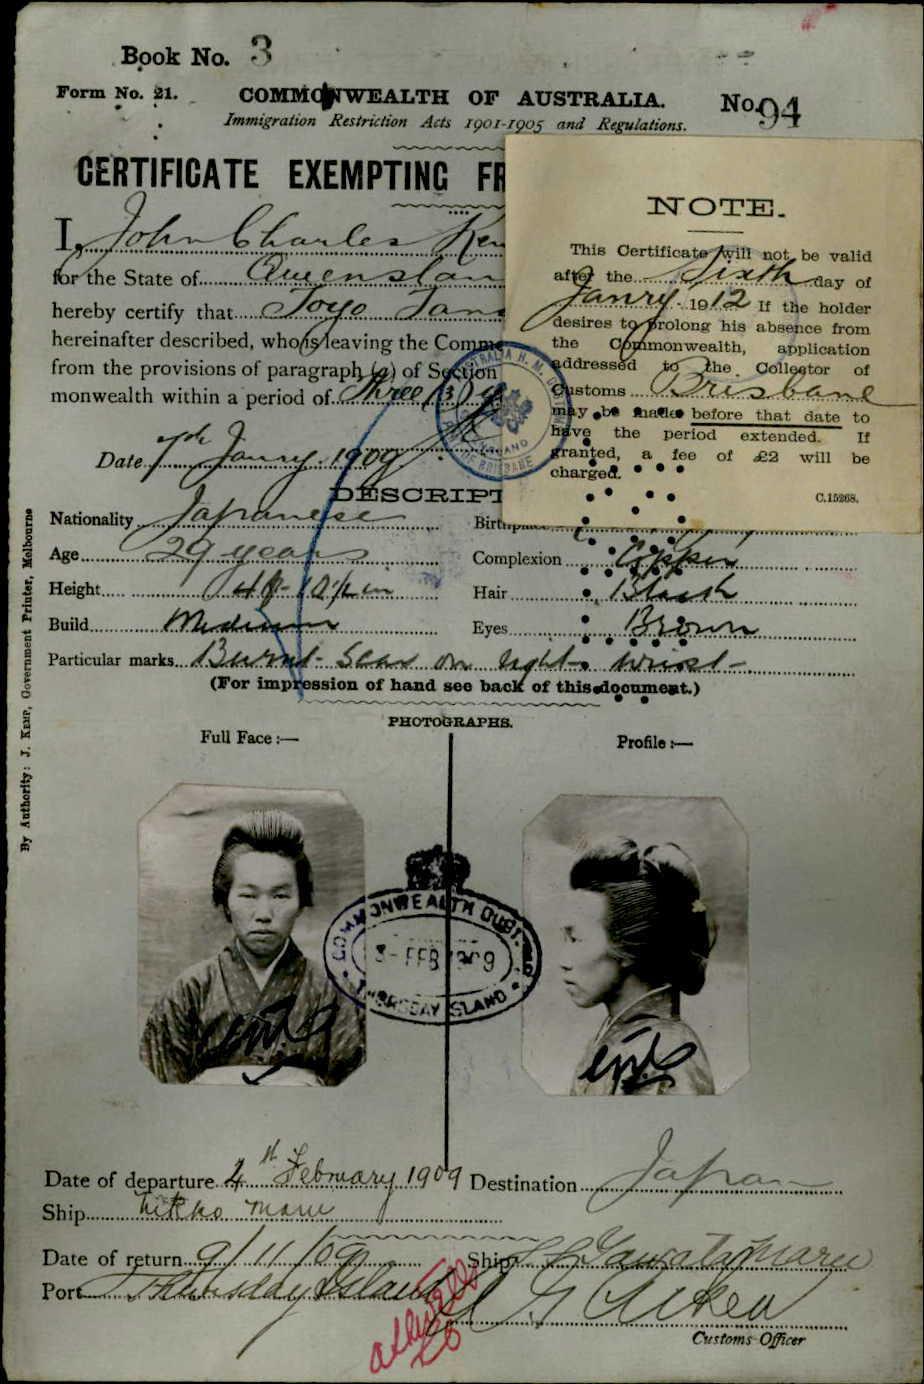 Book No. 3
Form No. 21. COMMONWEALTH OF AUSTRALIA. No. 94
Immigration Restriction Acts 1901-1905 and Regulations.
CERTIFICATE EXEMPTING FR
I, John Charles Ken
for the State of Queenslan
hereby certify that Toyo Tan
hereinafter described, who is leaving the Commo
from the provisions of paragraph (a) of Section
monwealth within a period of Three (3) y
Date 7th Janry. 1909
NOTE.
This Certificate will not be valid
after the Sixth day of
Janry. 1912 If the holder
desires to prolong his absence from
the Commonwealth, application
addressed to the Collector of
Customs Brisbane
may be made before that date to
have the period extended. If
granted, a fee of £2 will be
charged.
C.15268.
DESCRIPT
Nationality Japanese Birthplace
Age 29 years Complexion Copper
Height 4 ft 10 ½ in Hair Black
Build Medium Eyes Brown
Particular marks Burnt Scar on right wrist
(For impression of hand see back of this document.)
PHOTOGRAPHS.
Full Face :— Profile :—
COMMONWEALTH
3 - FEB 1909
THURSDAY ISLAND
Date of departure 4th February 1909 Destination Japan
Ship Nikko Maru
Date of return 9/11/09 Ship Yawata Maru
Port Thursday Island
Customs Officer
By Authority: J. KEMP, Government Printer, Melbourne